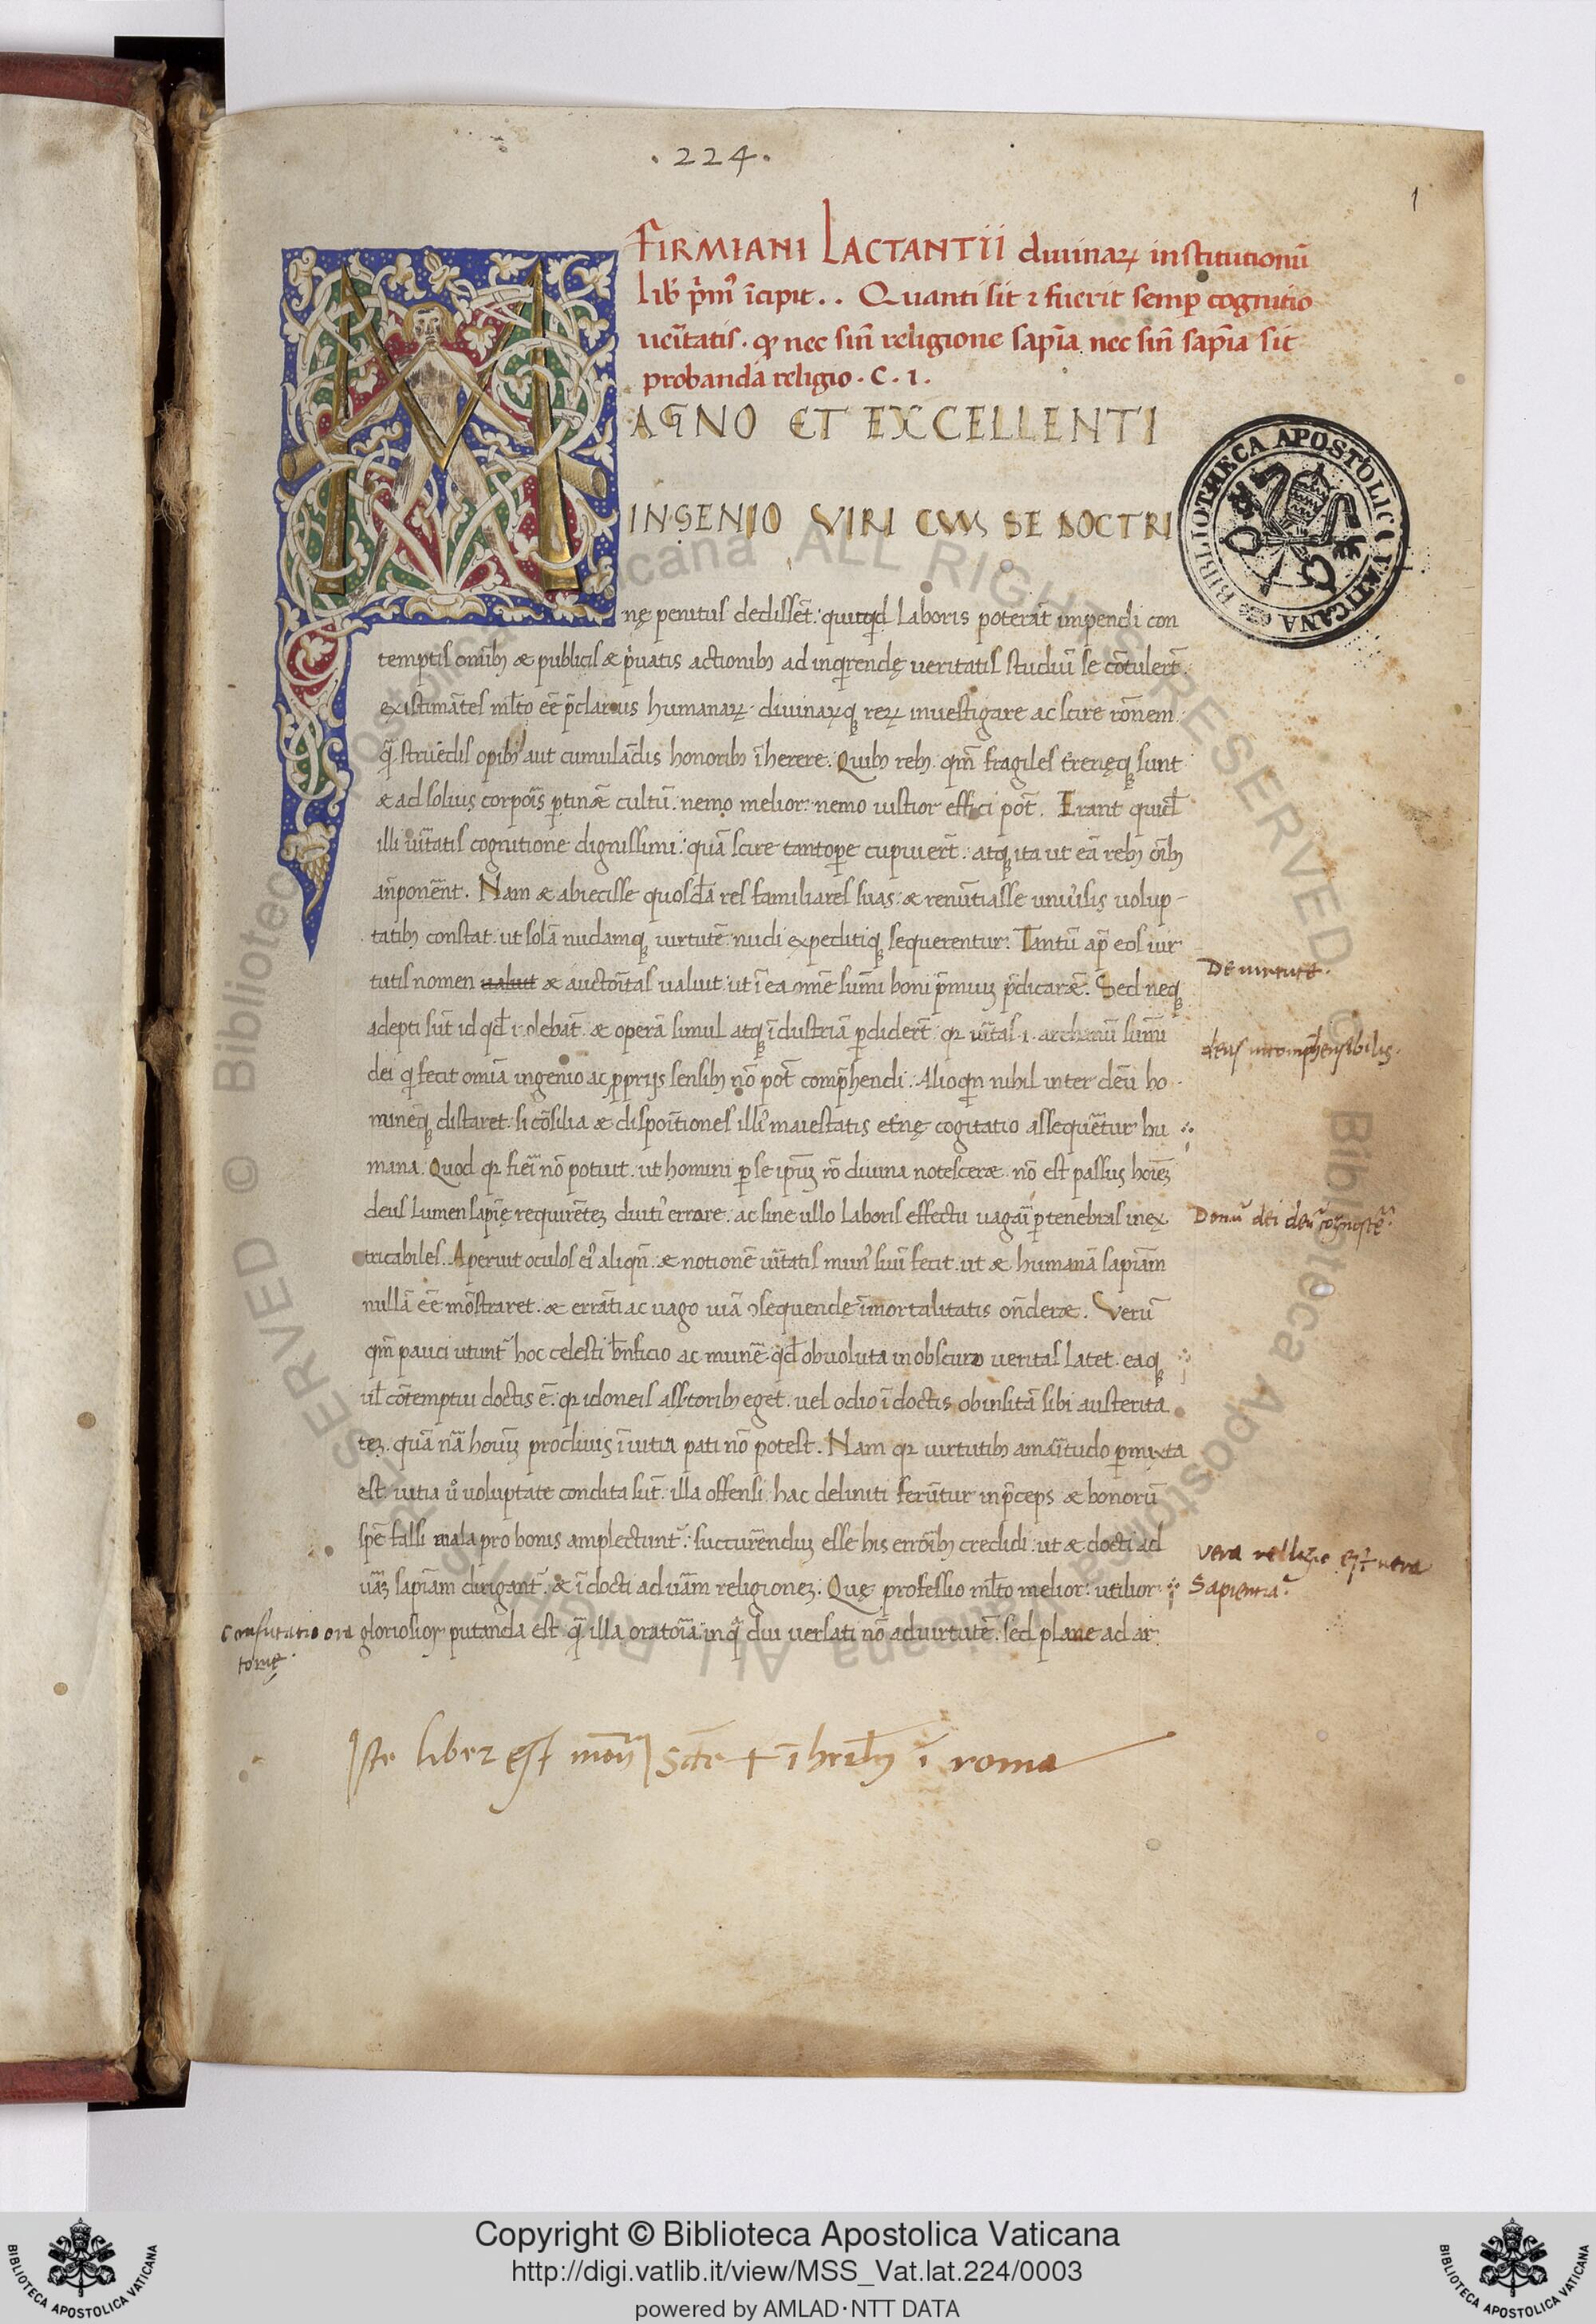 . 224 .
1
FIRMIANI LACTANTII diuinaꝝ institutionũ
Lib̃ p̃m᷒ ĩcipit . . Quanti sit ⁊ fuerit semp̲ cognitio
uẽitatis . ꝙ nec sin̄ religione sapīa nec sin̄ sapīa sit
probanda religio . C . 1 .
MAGNO ET EXCELLENTI
INGENIO VIRI CUM SE DOCTRI
nę penitus dedissēt : quicqͥd laboris poterat impendi con
temptis omĩbꝫ & publicis & pͥuatis actionibꝫ ad inqͥrendę ueritatis studiū se cōtulerũt
existimãtes ml̃to eē p̃clarius humanaꝝ diuinaꝝqꝫ reꝝ inuestigare ac scire rōnem
qͣ̃ struẽdis opibꝫ aut cumulãdis honoribꝫ īherere . Quibꝫ rebꝫ qm̄ fragiles t̄renęqꝫ sunt
& ad solius corpoĩs ꝑtinēt cultū . nemo melior : nemo iustior effici pōt . Erant quid̃
illi uĩtatis cognitione dignissimi : quā scire tantoꝑe cupiuerũt : atqꝫ ita ut eā rebꝫ oĩbꝫ
añponẽnt . Nam & abiecisse quosdā res familiares suas : & renũtiasse uniũsis uolup-
tatibꝫ constat ut solā nudamqꝫ uirtutē nudi expeditiqꝫ sequerentur . Tantū ap̃ eos uir
tutis nomen ualuit & auctoĩtas ualuit ut ī ea om̃e sum̃i boni p̃miuꝫ p̃dicaret̃ . Sed neqꝫ
adepti sũt id qd̃ uolebãt & operā simul atqꝫ īdustriā ꝑdiderũt qꝛ uĩtas .i. archanū sum̃i
dei qͥ fecit omīa ingenio ac ꝓprijs sensibꝫ nō pōt comp̃hendi . Alioqͥn nihil inter deū ho
minēqꝫ distaret si cōsilia & dispoĩtiones illi᷒ maiestatis et̃nę cogitatio assequẽtur hu
mana . Quod qꝛ fieĩ nō potuit ut homini ꝑ se ipsuꝫ rō diuina notescer& nō est passus hoĩeꝫ
deus lumen sapīę requirẽteꝫ diuti᷒ errare . ac sine ullo laboris effectu uagaĩ ꝑ tenebras inex
tricabiles . Aperuit oculos ei᷒ aliqn̄ & notionē uĩtatis mun᷒ suū fecit ut & humanā sapīam
nullā eē mōstraret . & errãti ac uago uiā ɔsequendę īmortalitatis on̄der& . Verũ
qm̄ pauci utunt᷑ hoc celesti bñficio ac mun̄e qd̃ obuoluta in obscuro ueritas latet eaqꝫ
ul̃ cōtemptui doctis ē : qꝛ idoneis asstoribꝫ eget . uel odio īdoctis ob insitā sibi austerita
teꝫ . quā nã hoĩuꝫ procliuis ī uitia pati nō potest . Nam qꝛ uirtutibꝫ amaĩtudo ꝑmixta
est uitia u᷒ uoluptate condita sũt . illa offensi hac deliniti ferũtur in p̃ceps & bonorū
spē falsi mala pro bonis amplectunt᷑ . succurẽnduꝫ esse his erroĩbꝫ credidi ut & docti ad
uãꝫ sapīam dirigant᷑ & īdocti ad uãm religioneꝫ . Quę professio ml̃to melior : utilior
gloriosior putanda est qͣ̃ illa oratoīa in qͣ̃ diu uersati nō ad uirtutē . sed plane ad ar
De uirtute .
deus incomp̃hensibilis .
Donũ dei
Vera rellegio est uera
Sapientia .
Confutatio ora
torię .
Iste liber est mon̄ Scẽ + ī hrĩlꝫ ī roma
BIBLIOTHECA APOSTOLICA VATICANA
Copyright © Biblioteca Apostolica Vaticana
http://digi.vatlib.it/view/MSS_Vat.lat.224/0003
powered by AMLAD·NTT DATA
BIBLIOTECA APOSTOLICA VATICANA
BIBLIOTECA APOSTOLICA VATICANA